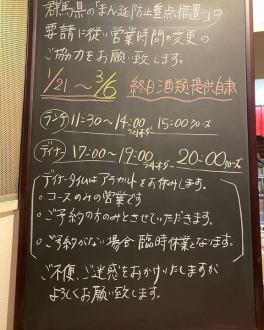 群馬県の「まん延防止重点措置」の
要請に従い営業時間の変更の
ご協力をお願い致します。
1/21~3/6 終日酒類提供自粛
ランチ 11:30~14:00ラストオーダー 15:00クローズ
ディナー 17:00~19:00ラストオーダー 20:00クローズ
ディナータイムはアラカルトをお休みします。
・コースのみの営業です
・ご予約の方のみとさせていただきます。
・ご予約がない場合 臨時休業となります。
ご不便、ご迷惑をおかけいたしますが
よろしくお願い致します。